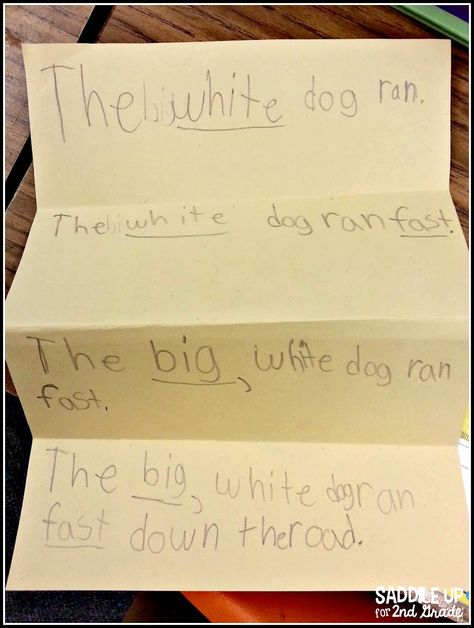 The big white dog ran.
The bi white dog ran fast.
The big, white dog ran
fast.
The big, white dog ran
fast down the road.
SADDLE UP
for 2nd GRADE